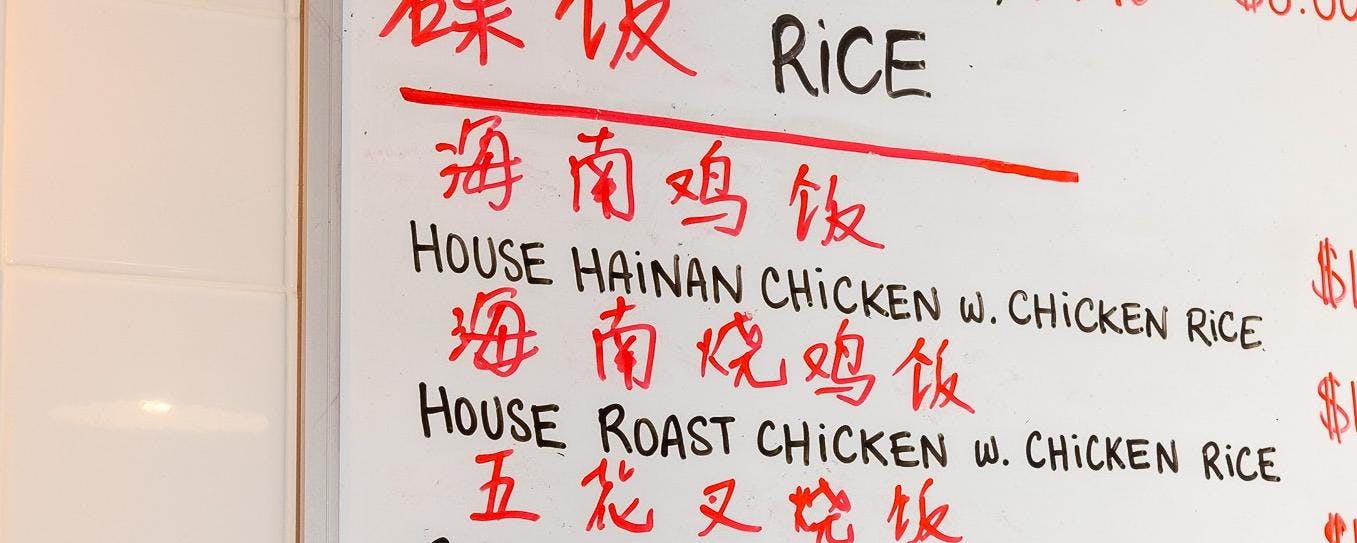 碟饭 RiCE
海南鸡饭
HOUSE HAiNAN CHiCKEN W. CHiCKEN RiCE
海南烧鸡饭
HOUSE ROAST CHiCKEN W. CHiCKEN RiCE
五花叉烧饭